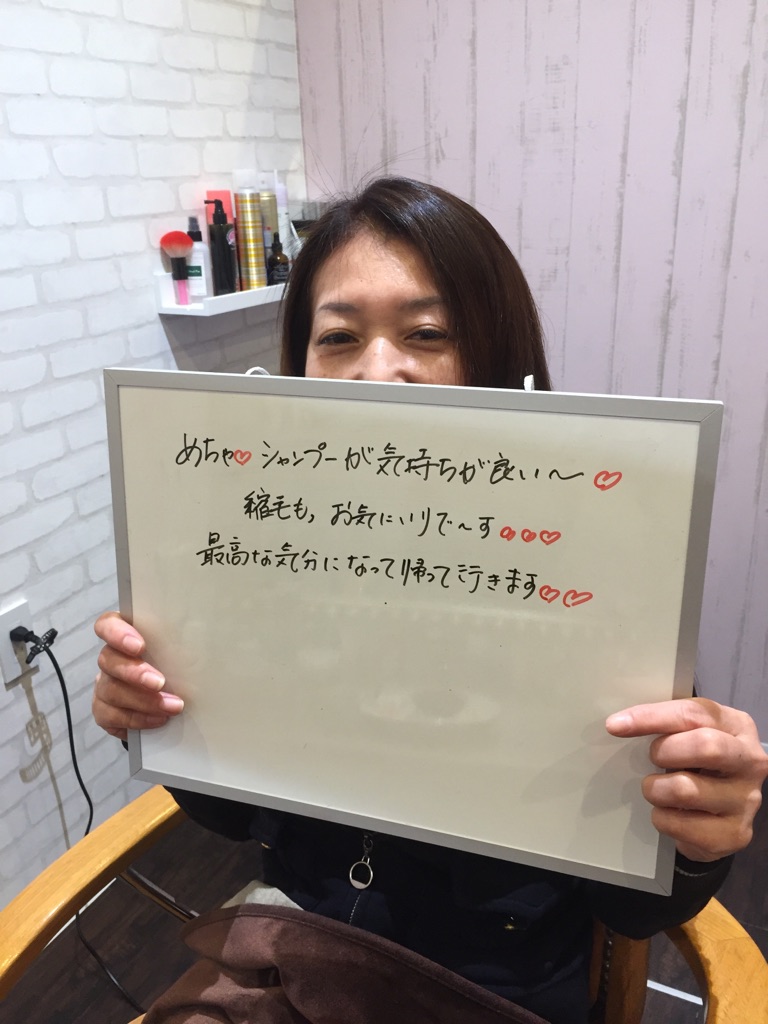 めちゃ♡シャンプーが気持ちが良い〜♡
縮毛も,お気にいりで〜す♡♡♡
最高な気分になって帰って行きます♡♡